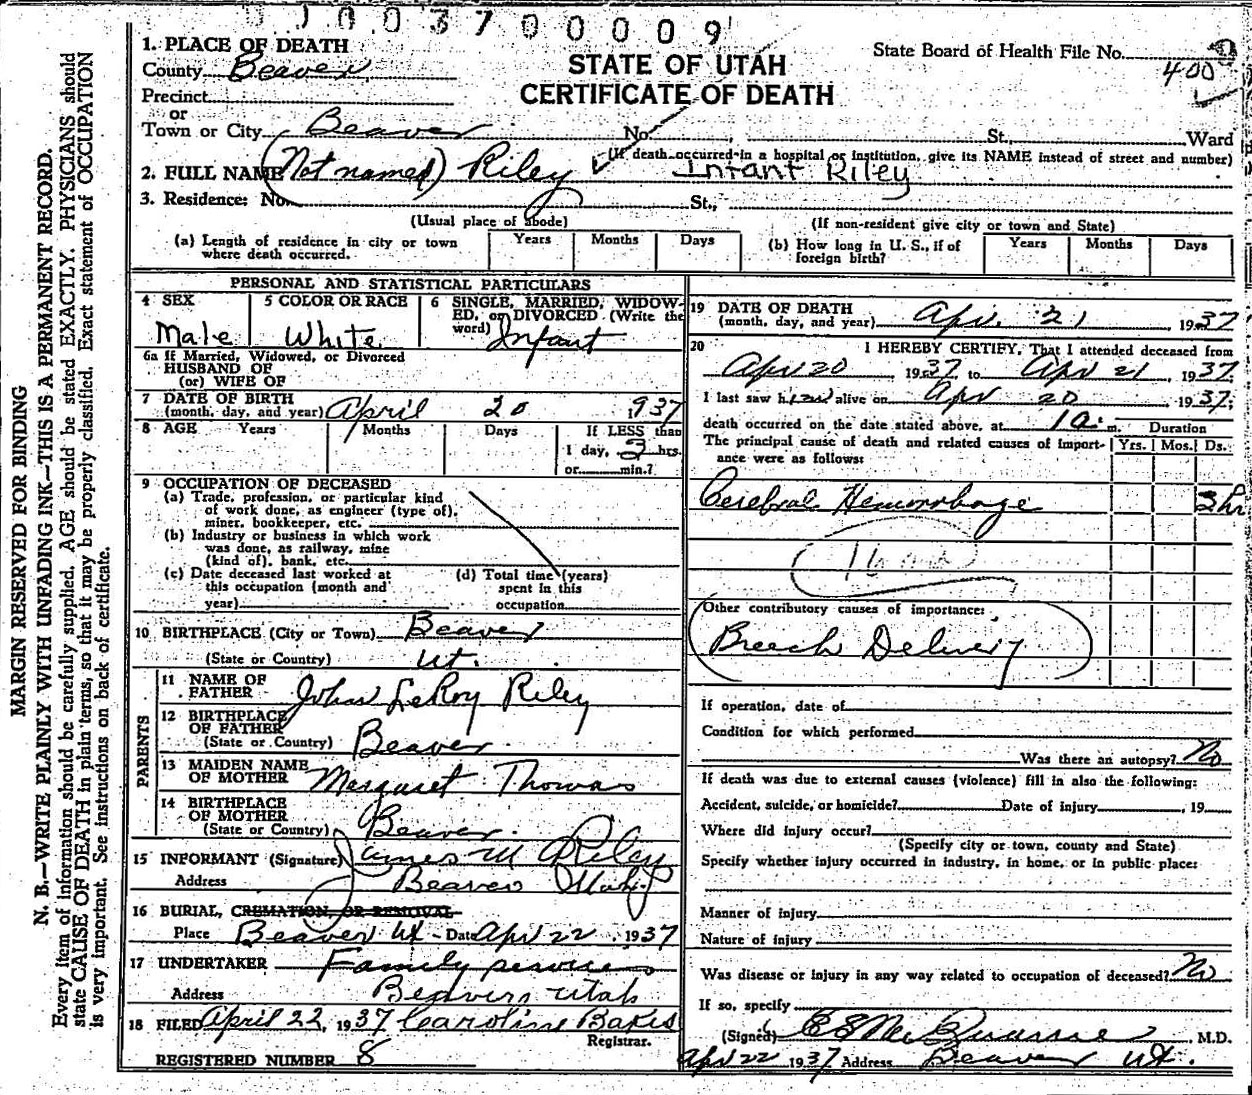 003700009
1. PLACE OF DEATH
County Beaver
Precinct
or
Town or City Beaver No. St., Ward
STATE OF UTAH
CERTIFICATE OF DEATH
State Board of Health File No.
400
(If death occurred in a hospital or institution, give its NAME instead of street and number)
2. FULL NAME (Not named) Riley ✓ Infant Riley
3. Residence: No. St.,
(Usual place of abode) (If non-resident give city or town and State)
(a) Length of residence in city or town where death occurred. Years Months Days (b) How long in U. S., if of foreign birth? Years Months Days
PERSONAL AND STATISTICAL PARTICULARS
4 SEX 5 COLOR OR RACE 6 SINGLE, MARRIED, WIDOW-
ED, or DIVORCED (Write the
word) Infant
Male White
6a If Married, Widowed, or Divorced
HUSBAND OF
(or) WIFE OF
7 DATE OF BIRTH
(month, day, and year) April 20 1937
8 AGE Years Months Days If LESS than
1 day, 3 hrs.
or min.?
9 OCCUPATION OF DECEASED
(a) Trade, profession, or particular kind
of work done, as engineer (type of),
miner, bookkeeper, etc.
(b) Industry or business in which work
was done, as railway, mine
(kind of), bank, etc.
(c) Date deceased last worked at
this occupation (month and
year)
(d) Total time (years)
spent in this
occupation
10 BIRTHPLACE (City or Town) Beaver
(State or Country) Ut.
PARENTS
11 NAME OF
FATHER John LeRoy Riley
12 BIRTHPLACE
OF FATHER
(State or Country) Beaver
13 MAIDEN NAME
OF MOTHER Margaret Thomas
14 BIRTHPLACE
OF MOTHER
(State or Country) Beaver.
15 INFORMANT (Signature) James M Riley
Address Beaver Utah
16 BURIAL, CREMATION, OR REMOVAL
Place Beaver Ut - Date Apr 22, 1937
17 UNDERTAKER Family services
Address Beaver Utah
18 FILED April 22, 1937 Caroline Bakes
Registrar.
REGISTERED NUMBER 8
19 DATE OF DEATH
(month, day, and year) Apr. 21, 1937
20 I HEREBY CERTIFY, That I attended deceased from
Apr 20 1937, to Apr 21, 1937.
I last saw him alive on Apr 20 1937;
death occurred on the date stated above, at 1 a. m. Duration
The principal cause of death and related causes of import-
ance were as follows: Yrs. Mos. Ds.
Cerebral Hemorrhage 3 hr
Other contributory causes of importance:
Breech Delivery
If operation, date of
Condition for which performed
Was there an autopsy? No
If death was due to external causes (violence) fill in also the following:
Accident, suicide, or homicide? Date of injury , 19
Where did injury occur?
(Specify city or town, county and State)
Specify whether injury occurred in industry, in home, or in public place:
Manner of injury
Nature of injury
Was disease or injury in any way related to occupation of deceased? No
If so, specify
(Signed) M.D.
Apr 22 1937 Address Beaver Ut.
MARGIN RESERVED FOR BINDING
N. B.—WRITE PLAINLY WITH UNFADING INK—THIS IS A PERMANENT RECORD.
Every item of information should be carefully supplied. AGE should be stated EXACTLY. PHYSICIANS should
state CAUSE OF DEATH in plain terms, so that it may be properly classified. Exact statement of OCCUPATION
is very important. See instructions on back of certificate.